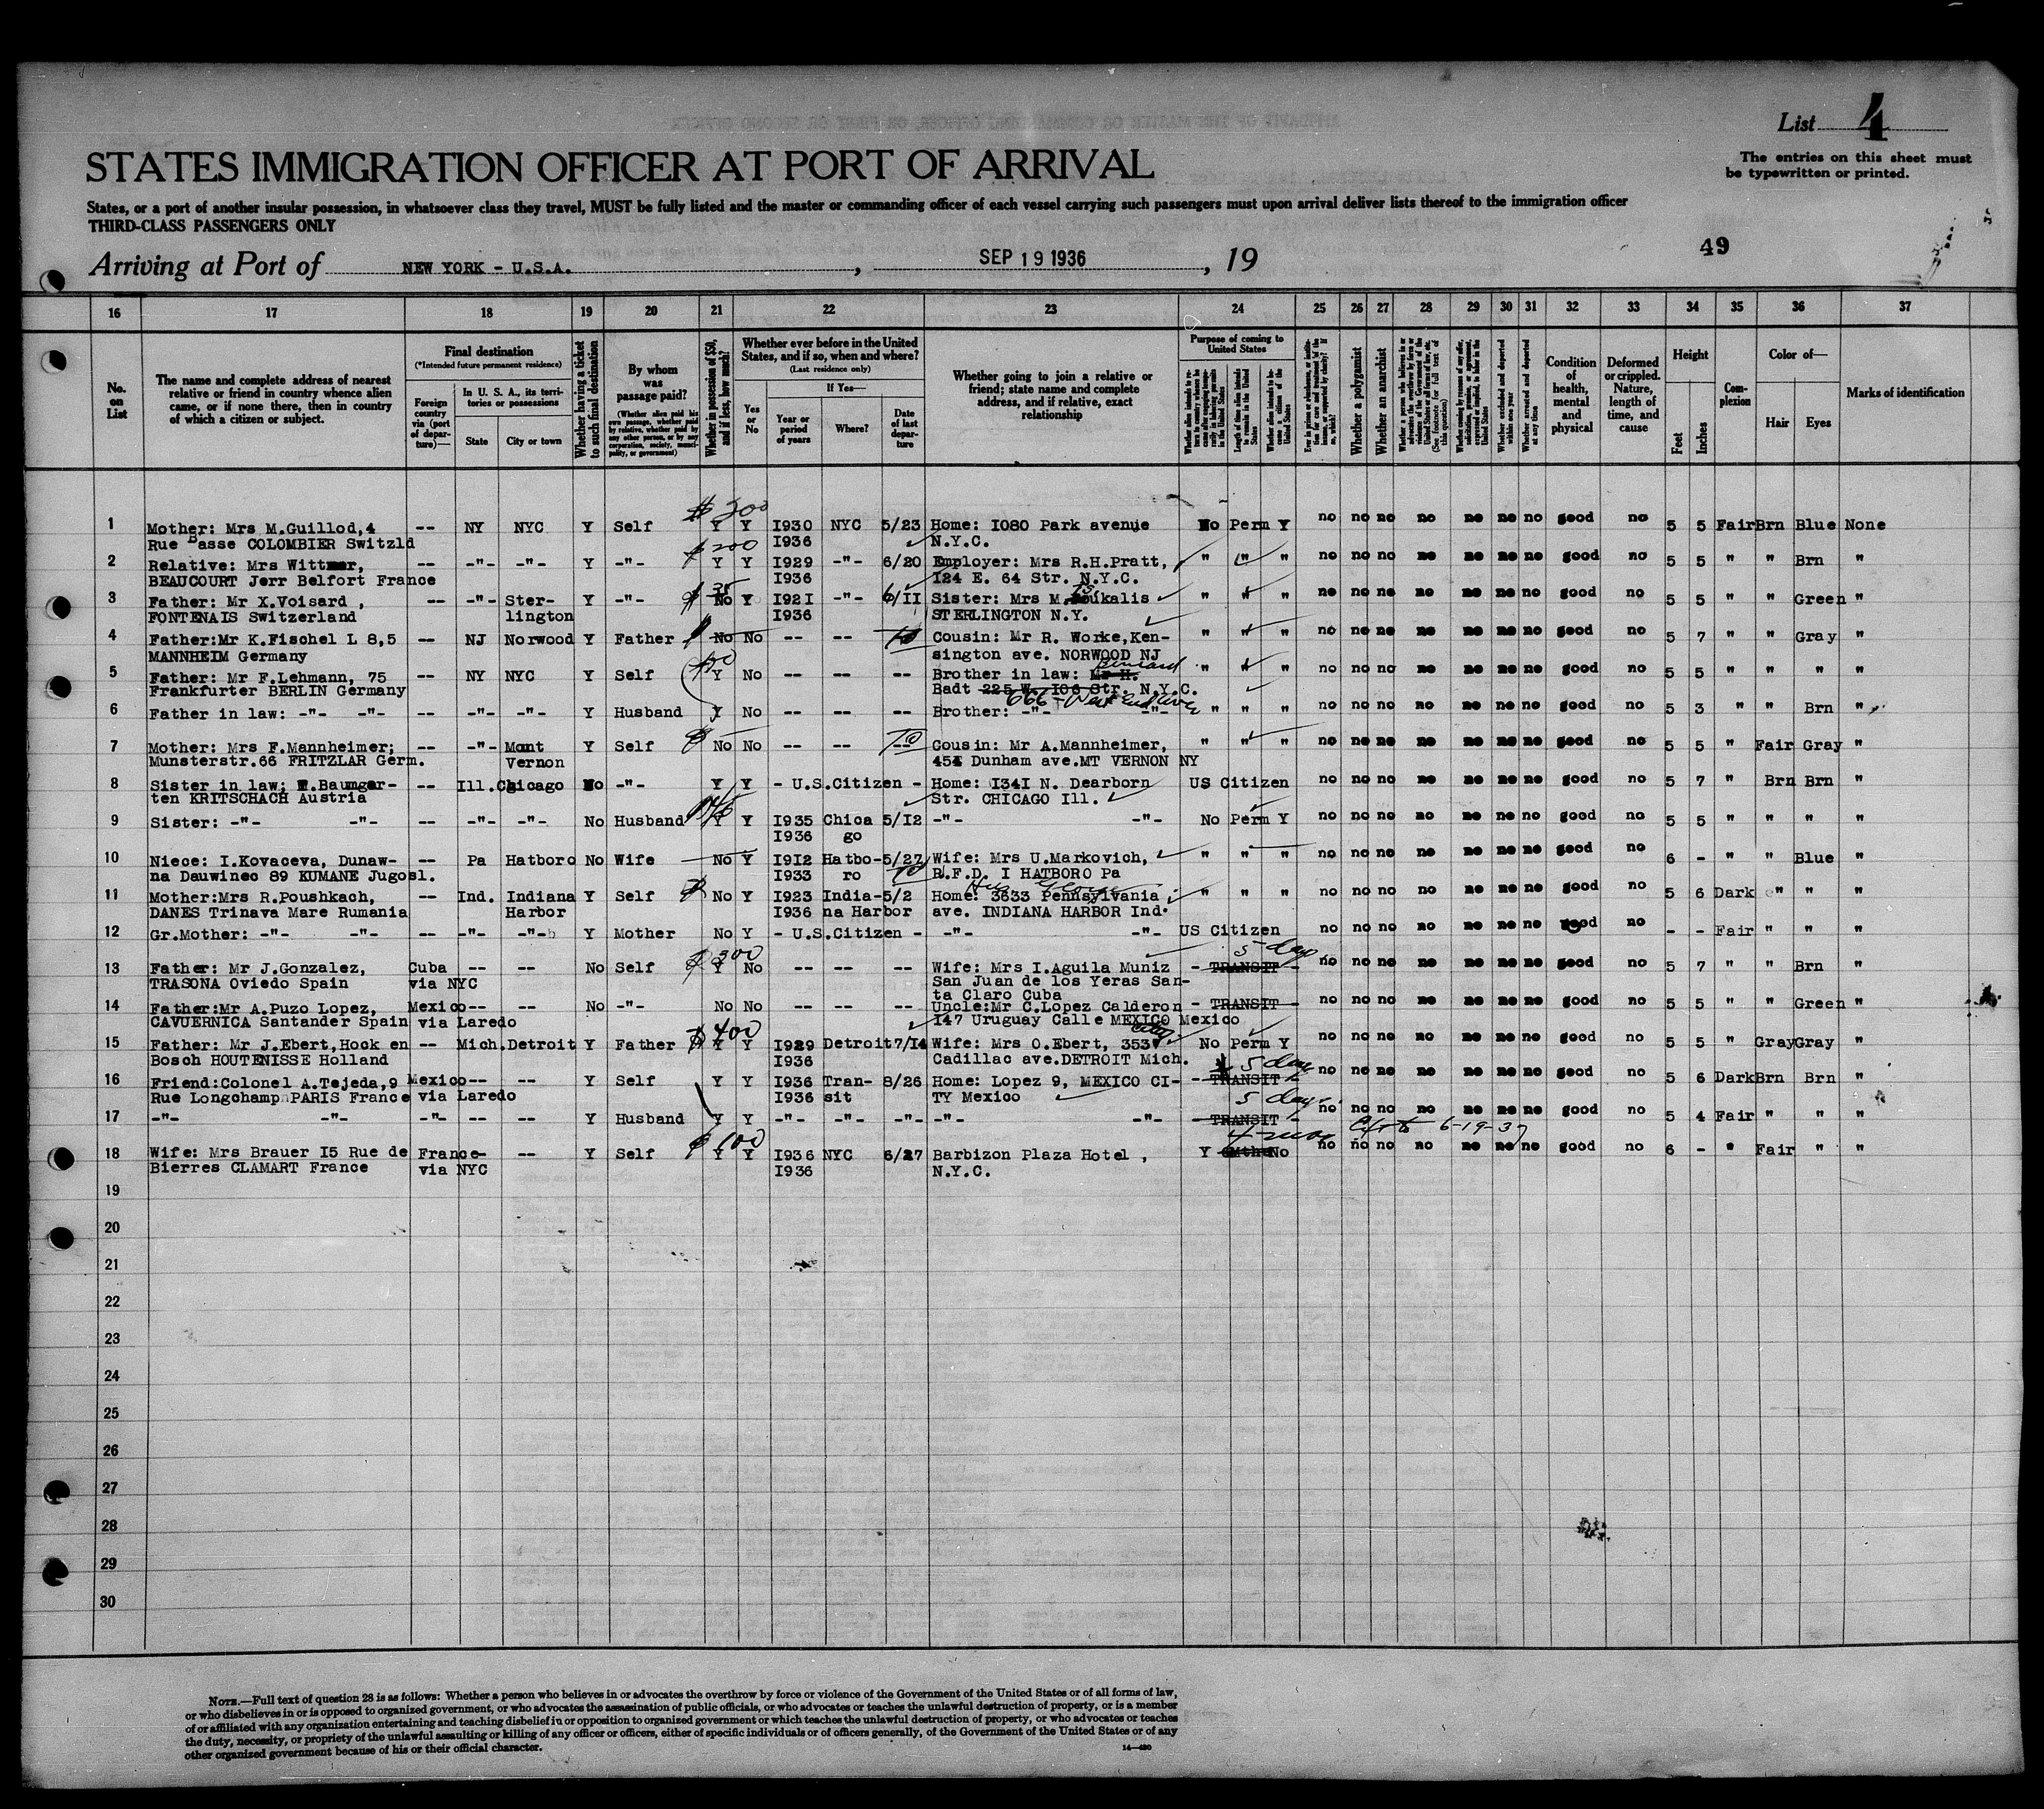 List 4
The entries on this sheet must
be typewritten or printed.
STATES IMMIGRATION OFFICER AT PORT OF ARRIVAL
States, or a port of another insular possession, in whatsoever class they travel, MUST be fully listed and the master or commanding officer of each vessel carrying such passengers must upon arrival deliver lists thereof to the immigration officer
THIRD-CLASS PASSENGERS ONLY
49
Arriving at Port of NEW YORK - U.S.A. , SEP 19 1936 , 19
16 17 18 19 20 21 22 23 24 25 26 27 28 29 30 31 32 33 34 35 36 37
No. on List
The name and complete address of nearest
relative or friend in country whence alien
came, or if none there, then in country
of which a citizen or subject.
Final destination
(*Intended future permanent residence)
Foreign country via (port of departure)—
In U. S. A., its territories or possessions
State City or town
Whether having a ticket to such final destination
By whom was passage paid?
Whether in possession of $50, and if less, how much?
Whether ever before in the United
States, and if so, when and where?
(Last residence only)
Yes or No
If Yes—
Year or period of years Where? Date of last departure
Whether going to join a relative or
friend; state name and complete
address, and if relative, exact
relationship
Purpose of coming to United States
Whether a polygamist
Whether an anarchist
Condition of health, mental and physical
Deformed or crippled. Nature, length of time, and cause
Height
Feet Inches
Complexion
Color of—
Hair Eyes
Marks of identification
$300
1 Mother: Mrs M.Guillod,4 -- NY NYC Y Self Y Y I930 NYC 5/23 Home: I080 Park avenue No Perm Y no no no no no no no good no 5 5 Fair Brn Blue None
Rue Basse COLOMBIER Switzld I936 N.Y.C.
$200
2 Relative: Mrs Wittmer, -- -"- -"- Y -"- Y Y I929 -"- 6/20 Employer: Mrs R.H.Pratt, " " " no no no no no no no good no 5 5 " " Brn "
BEAUCOURT Jerr Belfort France I936 I24 E. 64 Str. N.Y.C.
$35
3 Father: Mr X.Voisard , -- -"- Ster- Y -"- No Y I92I -"- 6/II Sister: Mrs M. ukalis " " " no no no no no no no good no 5 5 " " Green "
FONTENAIS Switzerland lington I936 STERLINGTON N.Y.
4 Father:Mr K.Fischel L 8,5 -- NJ Norwood Y Father No No -- -- 10 Cousin: Mr R. Worke,Ken- " " " no no no no no no no good no 5 7 " " Gray "
MANNHEIM Germany sington ave. NORWOOD NJ
5 Father: Mr F.Lehmann, 75 -- NY NYC Y Self Y No -- -- -- Brother in law: Mr H. " " " no no no no no no no good no 5 5 " " " "
Frankfurter BERLIN Germany Badt 225 W. I06 Str. N.Y.C.
666 - West End Ave
6 Father in law: -"- -"- -- -"- -"- Y Husband Y No -- -- -- Brother: -"- -"- " " " no no no no no no no good no 5 3 " " Brn "
7 Mother: Mrs F.Mannheimer; -- -"- Mont Y Self No No -- -- 10 Cousin: Mr A.Mannheimer, " " " no no no no no no no good no 5 5 " Fair Gray "
Munsterstr.66 FRITZLAR Germ. Vernon 454 Dunham ave.MT VERNON NY
8 Sister in law; W.Baumgar- -- Ill. Chicago No -"- Y Y - U.S.Citizen - Home: I34I N. Dearborn US Citizen no no no no no no no good no 5 7 " Brn Brn "
ten KRITSCHACH Austria Str. CHICAGO Ill.
9 Sister: -"- -"- -- -"- -"- No Husband Y Y I935 Chica 5/I2 -"- -"- No Perm Y no no no no no no no good no 5 5 " " " "
I936 go
10 Niece: I.Kovaceva, Dunaw- -- Pa Hatboro No Wife No Y I9I2 Hatbo- 5/27 Wife: Mrs U.Markovich, " " " no no no no no no no good no 6 - " " Blue "
na Dauwinec 89 KUMANE Jugosl. I933 ro 10 R.F.D. I HATBORO Pa
11 Mother:Mrs R.Poushkach, -- Ind. Indiana Y Self No Y I923 India- 5/2 Home: 3633 Pennsylvania " " " no no no no no no no good no 5 6 Dark " " "
DANES Trinava Mare Rumania Harbor I936 na Harbor ave. INDIANA HARBOR Ind.
12 Gr.Mother: -"- -"- -- -"- -"- Y Mother No Y - U.S.Citizen - -"- -"- US Citizen no no no no no no no good no - - Fair " " "
$300 5 days
13 Father: Mr J.Gonzalez, Cuba -- -- No Self Y No -- -- -- Wife: Mrs I.Aguila Muniz - TRANSIT - no no no no no no no good no 5 7 " " Brn "
TRASONA Oviedo Spain via NYC San Juan de los Yeras San-
ta Claro Cuba
14 Father:Mr A.Puzo Lopez, Mexico -- -- No -"- No No -- -- -- Uncle:Mr C.Lopez Calderon - TRANSIT - no no no no no no no good no 5 5 " " Green "
CAVUERNICA Santander Spain via Laredo I47 Uruguay Calle MEXICO Mexico
$400 City
15 Father: Mr J.Ebert,Hock en -- Mich. Detroit Y Father Y Y I929 Detroit 7/I4 Wife: Mrs O.Ebert, 353 No Perm Y no no no no no no no good no 5 5 " Gray Gray "
Bosch HOUTENISSE Holland I936 Cadillac ave.DETROIT Mich.
5 days
16 Friend:Colonel A.Tejeda,9 Mexico -- -- Y Self Y Y I936 Tran- 8/26 Home: Lopez 9, MEXICO CI- - TRANSIT - no no no no no no no good no 5 6 Dark Brn Brn "
Rue Longchamp PARIS France via Laredo I936 sit TY Mexico
5 days
17 -"- -"- -"- -- -- Y Husband Y Y -"- -"- -"- -"- -"- TRANSIT - no no no no no no no good no 5 4 Fair " " "
$100 4 mos 6-19-37
18 Wife: Mrs Brauer I5 Rue de France -- -- Y Self Y Y I936 NYC 6/27 Barbizon Plaza Hotel , Y 6Mths No no no no no no no no good no 6 - " Fair " "
Bierres CLAMART France via NYC I936 N.Y.C.
19
20
21
22
23
24
25
26
27
28
29
30
NOTE.—Full text of question 28 is as follows: Whether a person who believes in or advocates the overthrow by force or violence of the Government of the United States or of all forms of law,
or who disbelieves in or is opposed to organized government, or who advocates the assassination of public officials, or who advocates or teaches the unlawful destruction of property, or is a member
of or affiliated with any organization entertaining and teaching disbelief in or opposition to organized government or which teaches the unlawful destruction of property, or who advocates or teaches
the duty, necessity, or propriety of the unlawful assaulting or killing of any officer or officers, either of specific individuals or of officers generally, of the Government of the United States or of any
other organized government because of his or their official character.
14—430